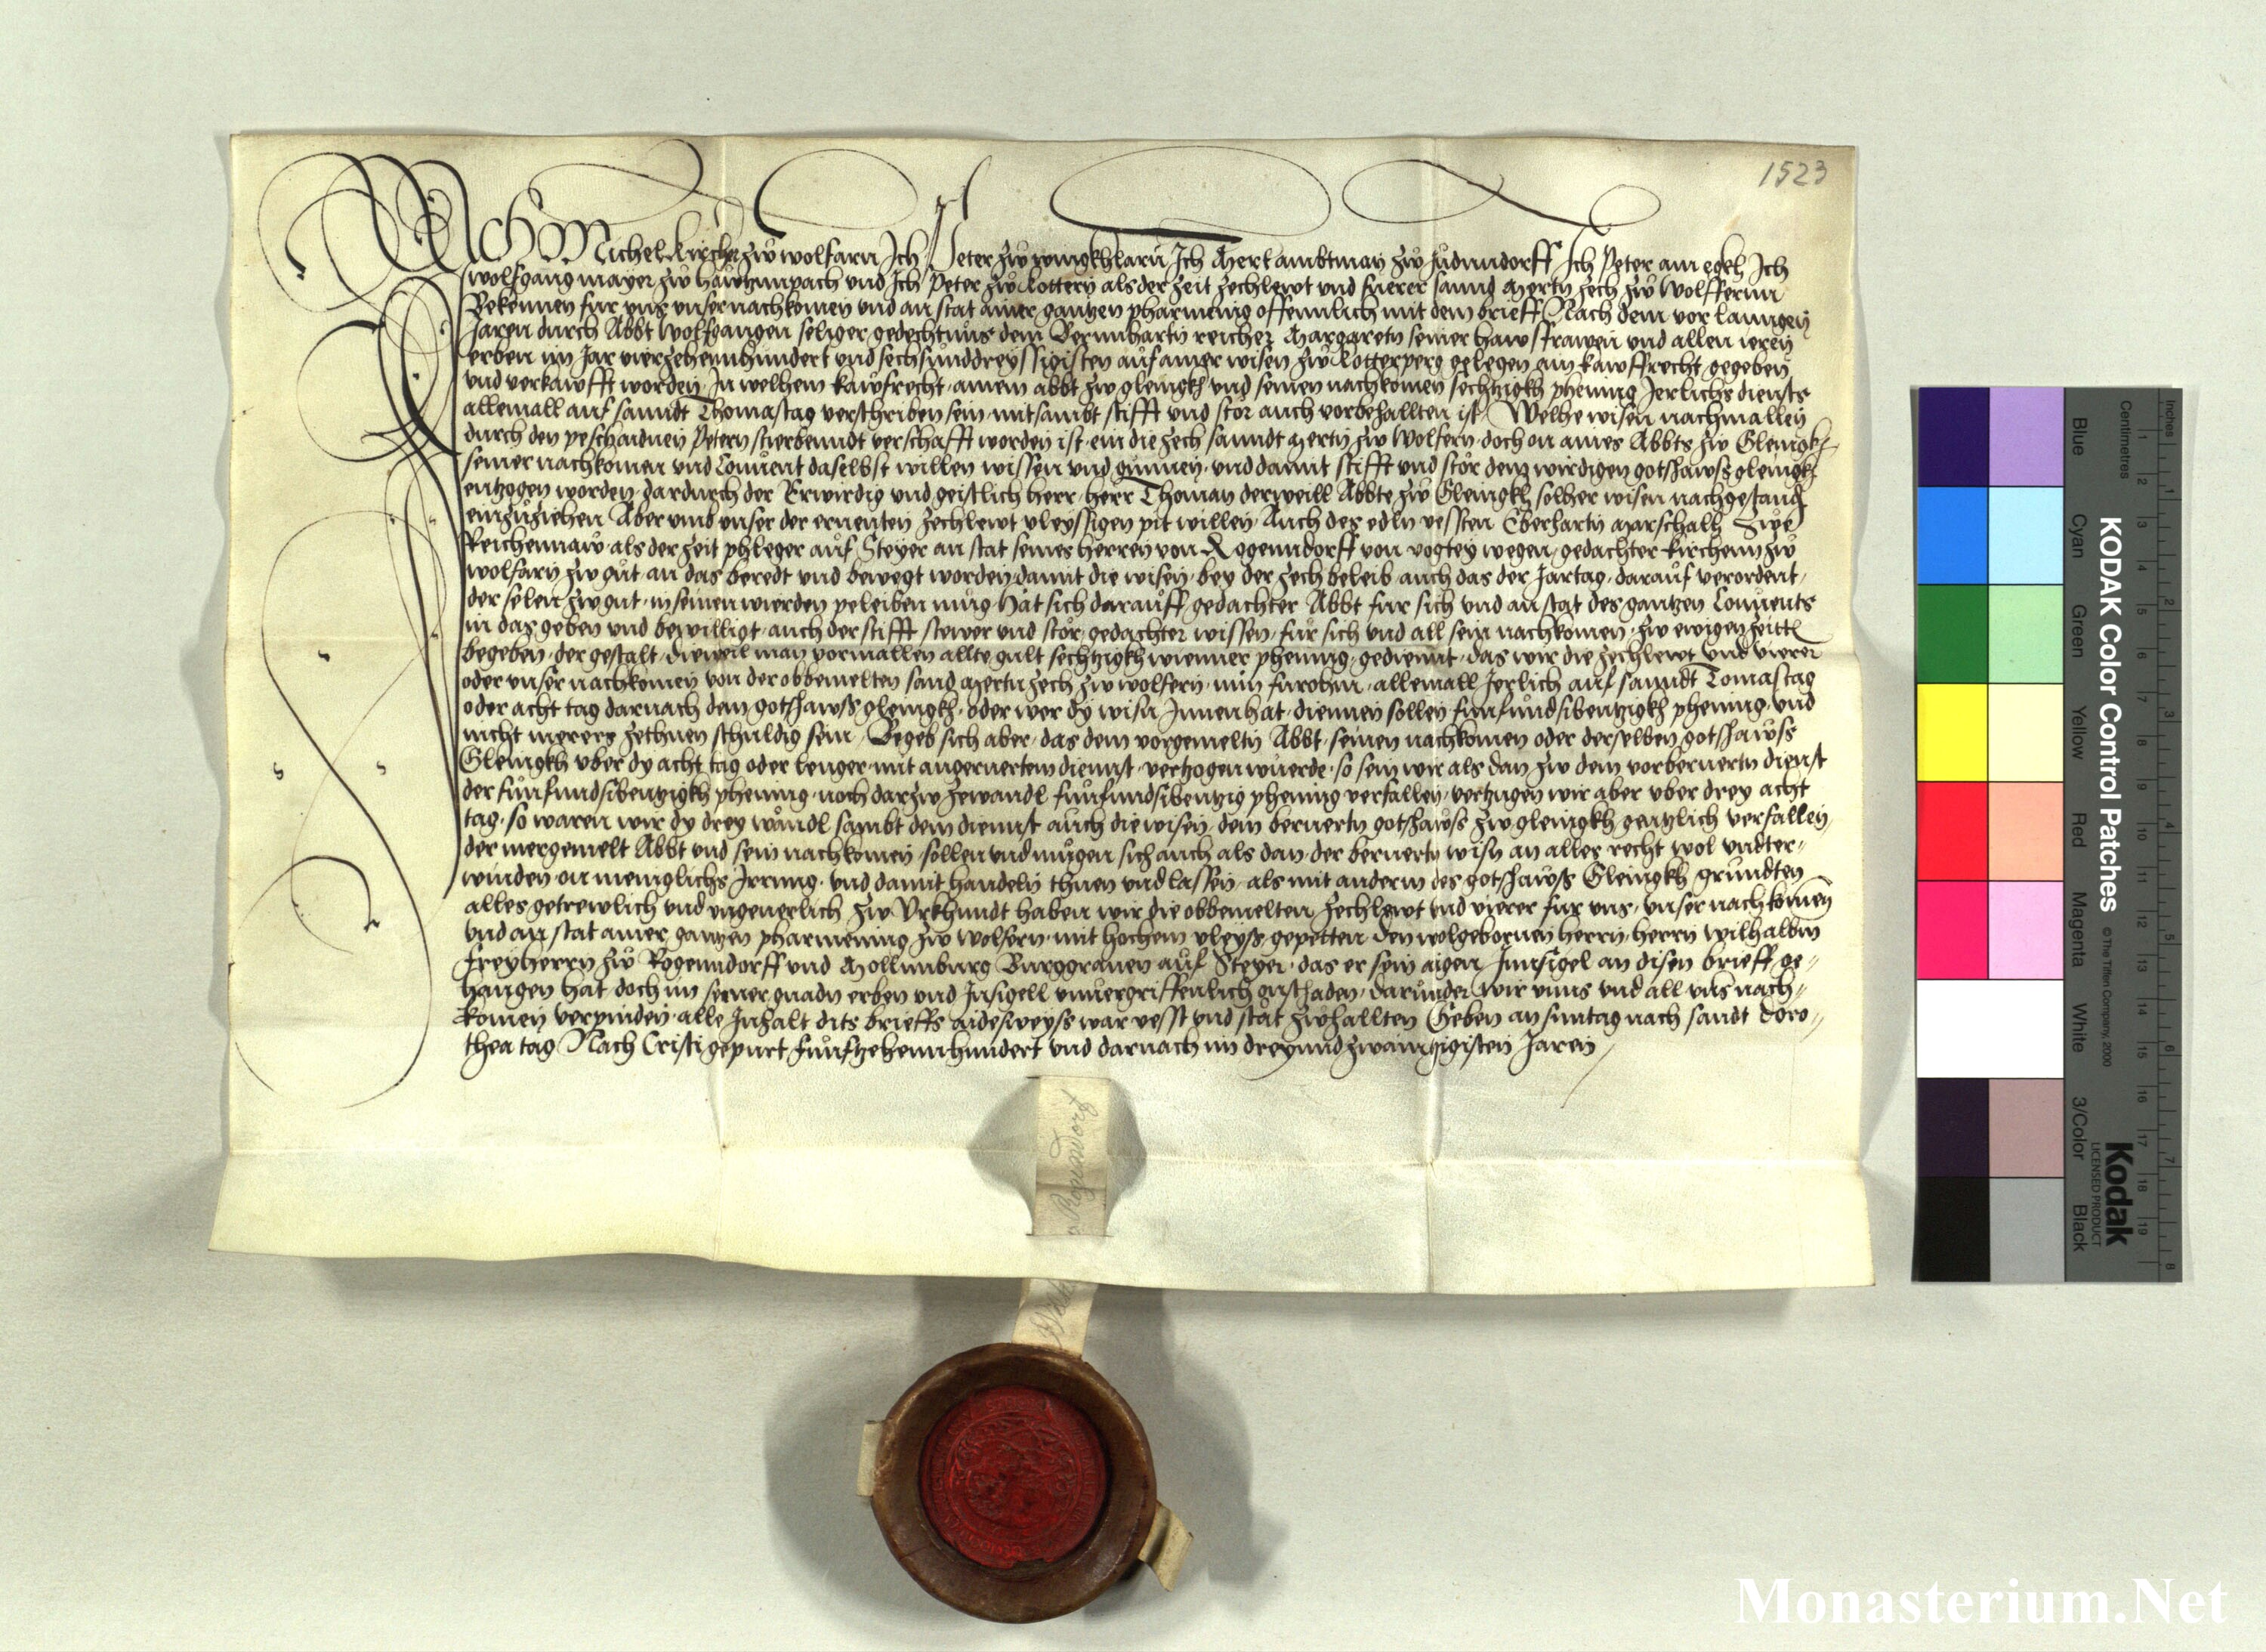 1523
Ich Michel kircher zw wolfarn Ich Peter zw Ich Mert ambtman zw Ich Peter am egkh Ich
wolfgang mayer zw und Ich Peter zw Rottern als der zeit zechlewt und sannd Mertn zech zw Wolffernn
Bekennen fur vns vnser nachkomen vnd an stat ainer gantzen pharmenig offennlich mit dem brieff Nach dem vor lanngen
Jaren durch Abbt Wolfgangen seliger gedechtnus dem Bernnhartn reicher Margaretn seiner hawsfrawen vnd allen ieren
erben im Jar vierzehennhundert vnd sechsunddreyssigisten auf ainer wisen zw Rotterperg gelegen ain kawffrecht gegeben
vnd verkawfft worden, In welhem kawfrecht ainem abbt zw gleingkh vnd seinen nachkomen sechtzigkh phening Jerlichs diensts
allemall auf sanndt Thomastag verschriben sein mitsambt stifft vnd stor auch vorbehallten ist Welhe wisen nachmallen
durch den peschaidnen Petern verschafft worden ist ein die zech sanndt Mertn zw Wolfern doch on aines Abbts zw Gleingkh
seiner nachkomen vnd Conuent daselbst willen wissen vnd gunnen vnd damit stifft vnd stor dem wirdigen gotshawss gleingkh
entzogen worden dardurch der Erwirdig vnd geistlich herr herr Thoman derweill Abbte zw Gleingkh solher wisen nachgestand
einzuziehen Aber vmb vnser der ernenten zechlewt vleyssigen pit willen Auch des edln vessten Eberhartn Marschalh zwe
Reichennaw als der zeit phleger auf Steyer an stat seines herren von Rogenndorff von vogtey wegen gedachter kirchenn zw
wolfarn zw gut an das beredt vnd bewegt worden damit die wisen bey der zech beleib auch das der Jartag darauf verordent
der selen zw gut in seinen wierden peleiben mug hat sich darauff gedachter Abbt fur sich vnd an stat des gantzen Conuents
in das geben vnd bewilligt auch der stifft stewer vnd stor gedachter wissen fur sich vnd all sein nachkomen zw ewigen zeitten
begeben der gestalt dieweil man vormallen allte gult sechtzigkh wienner phening gediennt das wir die zechlewt vnd vierer
oder vnser nachkomen von der obbemelten sand Mertn zech zw wolfern nun furohin allemall Jerlich auf sanndt Tomastag
oder acht tag darnach dem gotshawss gleingkh oder wer dy wisn Innen hat diennen sollen funfundsibentzigkh phening vnd
nicht merers zethuen schuldig sein Begeb sich aber das dem vorgemeltn Abbt seinen nachkomen oder derselben gotshawss
Gleingkh vber dy acht tag oder lenger mit angeruertem diennst vertzogen wuerde so sein wir als dan zw dem vorberuertn dienst
der funfundsibentzigkh phening noch darzw zewandl funfundsibentzig phening verfallen vertzugen wir aber vber drey acht
tag so waren wir dy drey wandl sambt dem diennst auch die wisen dem beruertn gotshawss zw gleingkh gentzlich verfallen
der mergemelt Abbt vnd sein nachkomen sollen vnd mugen sich auch als dan der beruertn wisn an alles recht wol vndter-
winden on meniglichs Irrung vnd damit handeln thuen vnd lassen als mit anderm des gotshawss Gleingkh grundten
alles getrewlich vnd vngeuerlich zw Vrkhundt haben wir die obbemelten zechlewt vnd vierer fur vns vnser nachkomen
vnd an stat ainer gantzen pharmening zw Wolfern mit hochem vleyss gepetten den wolgebornen herrn herrn Wilhalbm
freyherrn zw Rogenndorff vnd Mollnnburg Burggrauen auf Steyer das er sein aigen Innsigel an disen brieff ge-
hangen hat doch im seiner gnadn erben vnd Insigell vnuergriffenlich on schaden darunder wir vnns vnd all vns nach-
komen verpinden alle Inhalt dits brieffs aidesweyss war vesst vnd stat zwhallten Geben an suntag nach sandt Doro-
thea tag Nach Cristi gepurt funftzehennhundert vnd darnach im dreyundzwaintzigisten Jaren
Rogendorf
KODAK Color Control Patches
© The Tiffen Company, 2000
Kodak
LICENSED PRODUCT
Blue Cyan Green Yellow Red Magenta White 3/Color Black
Inches 1 2 3 4 5 6 7 8
Centimetres 1 2 3 4 5 6 7 8 9 10 11 12 13 14 15 16 17 18 19
Monasterium.Net